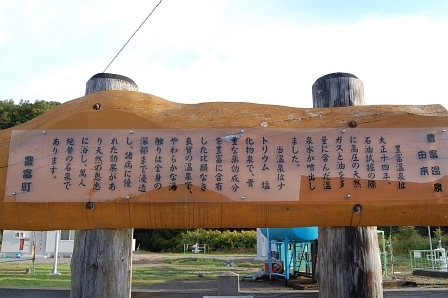 豊富温泉
由来
豊富温泉は
大正十四年、
石油試掘の際
に高圧の天然
ガスと油を多
量に含んだ温
泉水が噴出し
ました。
当温泉はナ
トリウム 塩
化物泉で、貴
重な薬効成分
を豊富に含有
した比類なき
良質の温泉で、
やわらかな湯
触りは全身の
深部まで浸透
し、諸病に優
れた効果があ
り天然の良泡
に浴し、萬人
絶賛の名泉で
あります。
豊富町